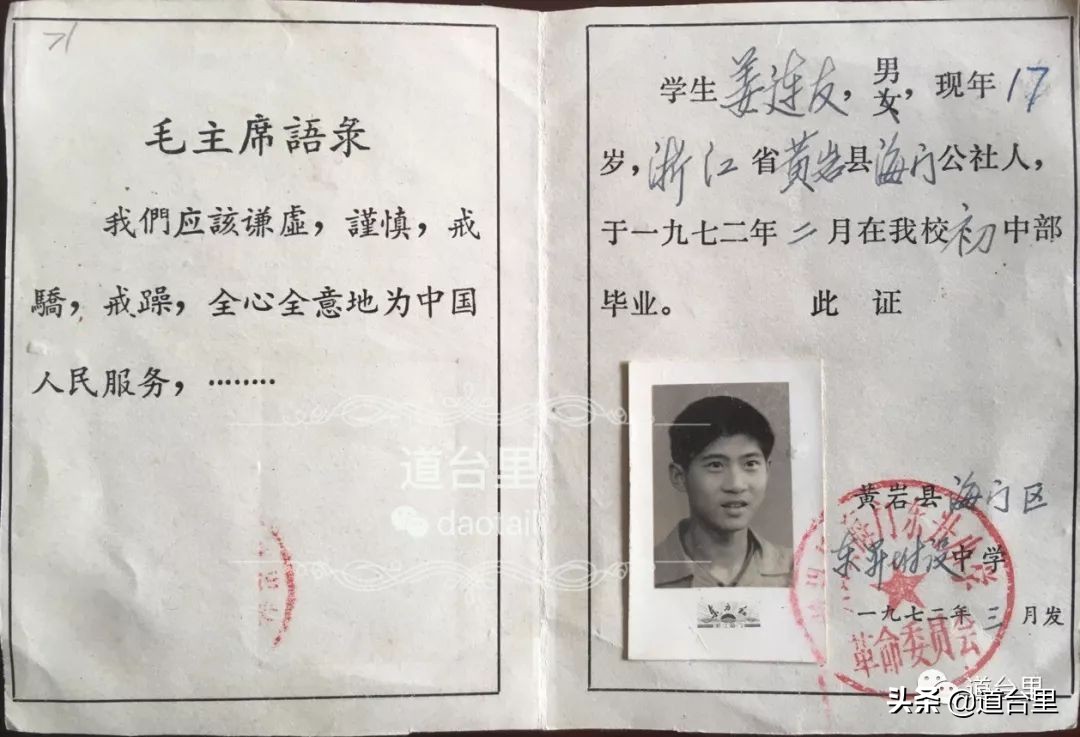 毛主席語彔
我們应該谦虛，謹慎，戒
驕，戒躁，全心全意地为中国
人民服务，………
学生姜连友，男女，现年17
岁，浙江省黄岩县海门公社人，
于一九七二年二月在我校初中部
毕业。 此 证
黄岩县海门区
东升附设中学
一九七二年三月发
革命委员会
道台里
daotaili
道台里
头条 @道台里